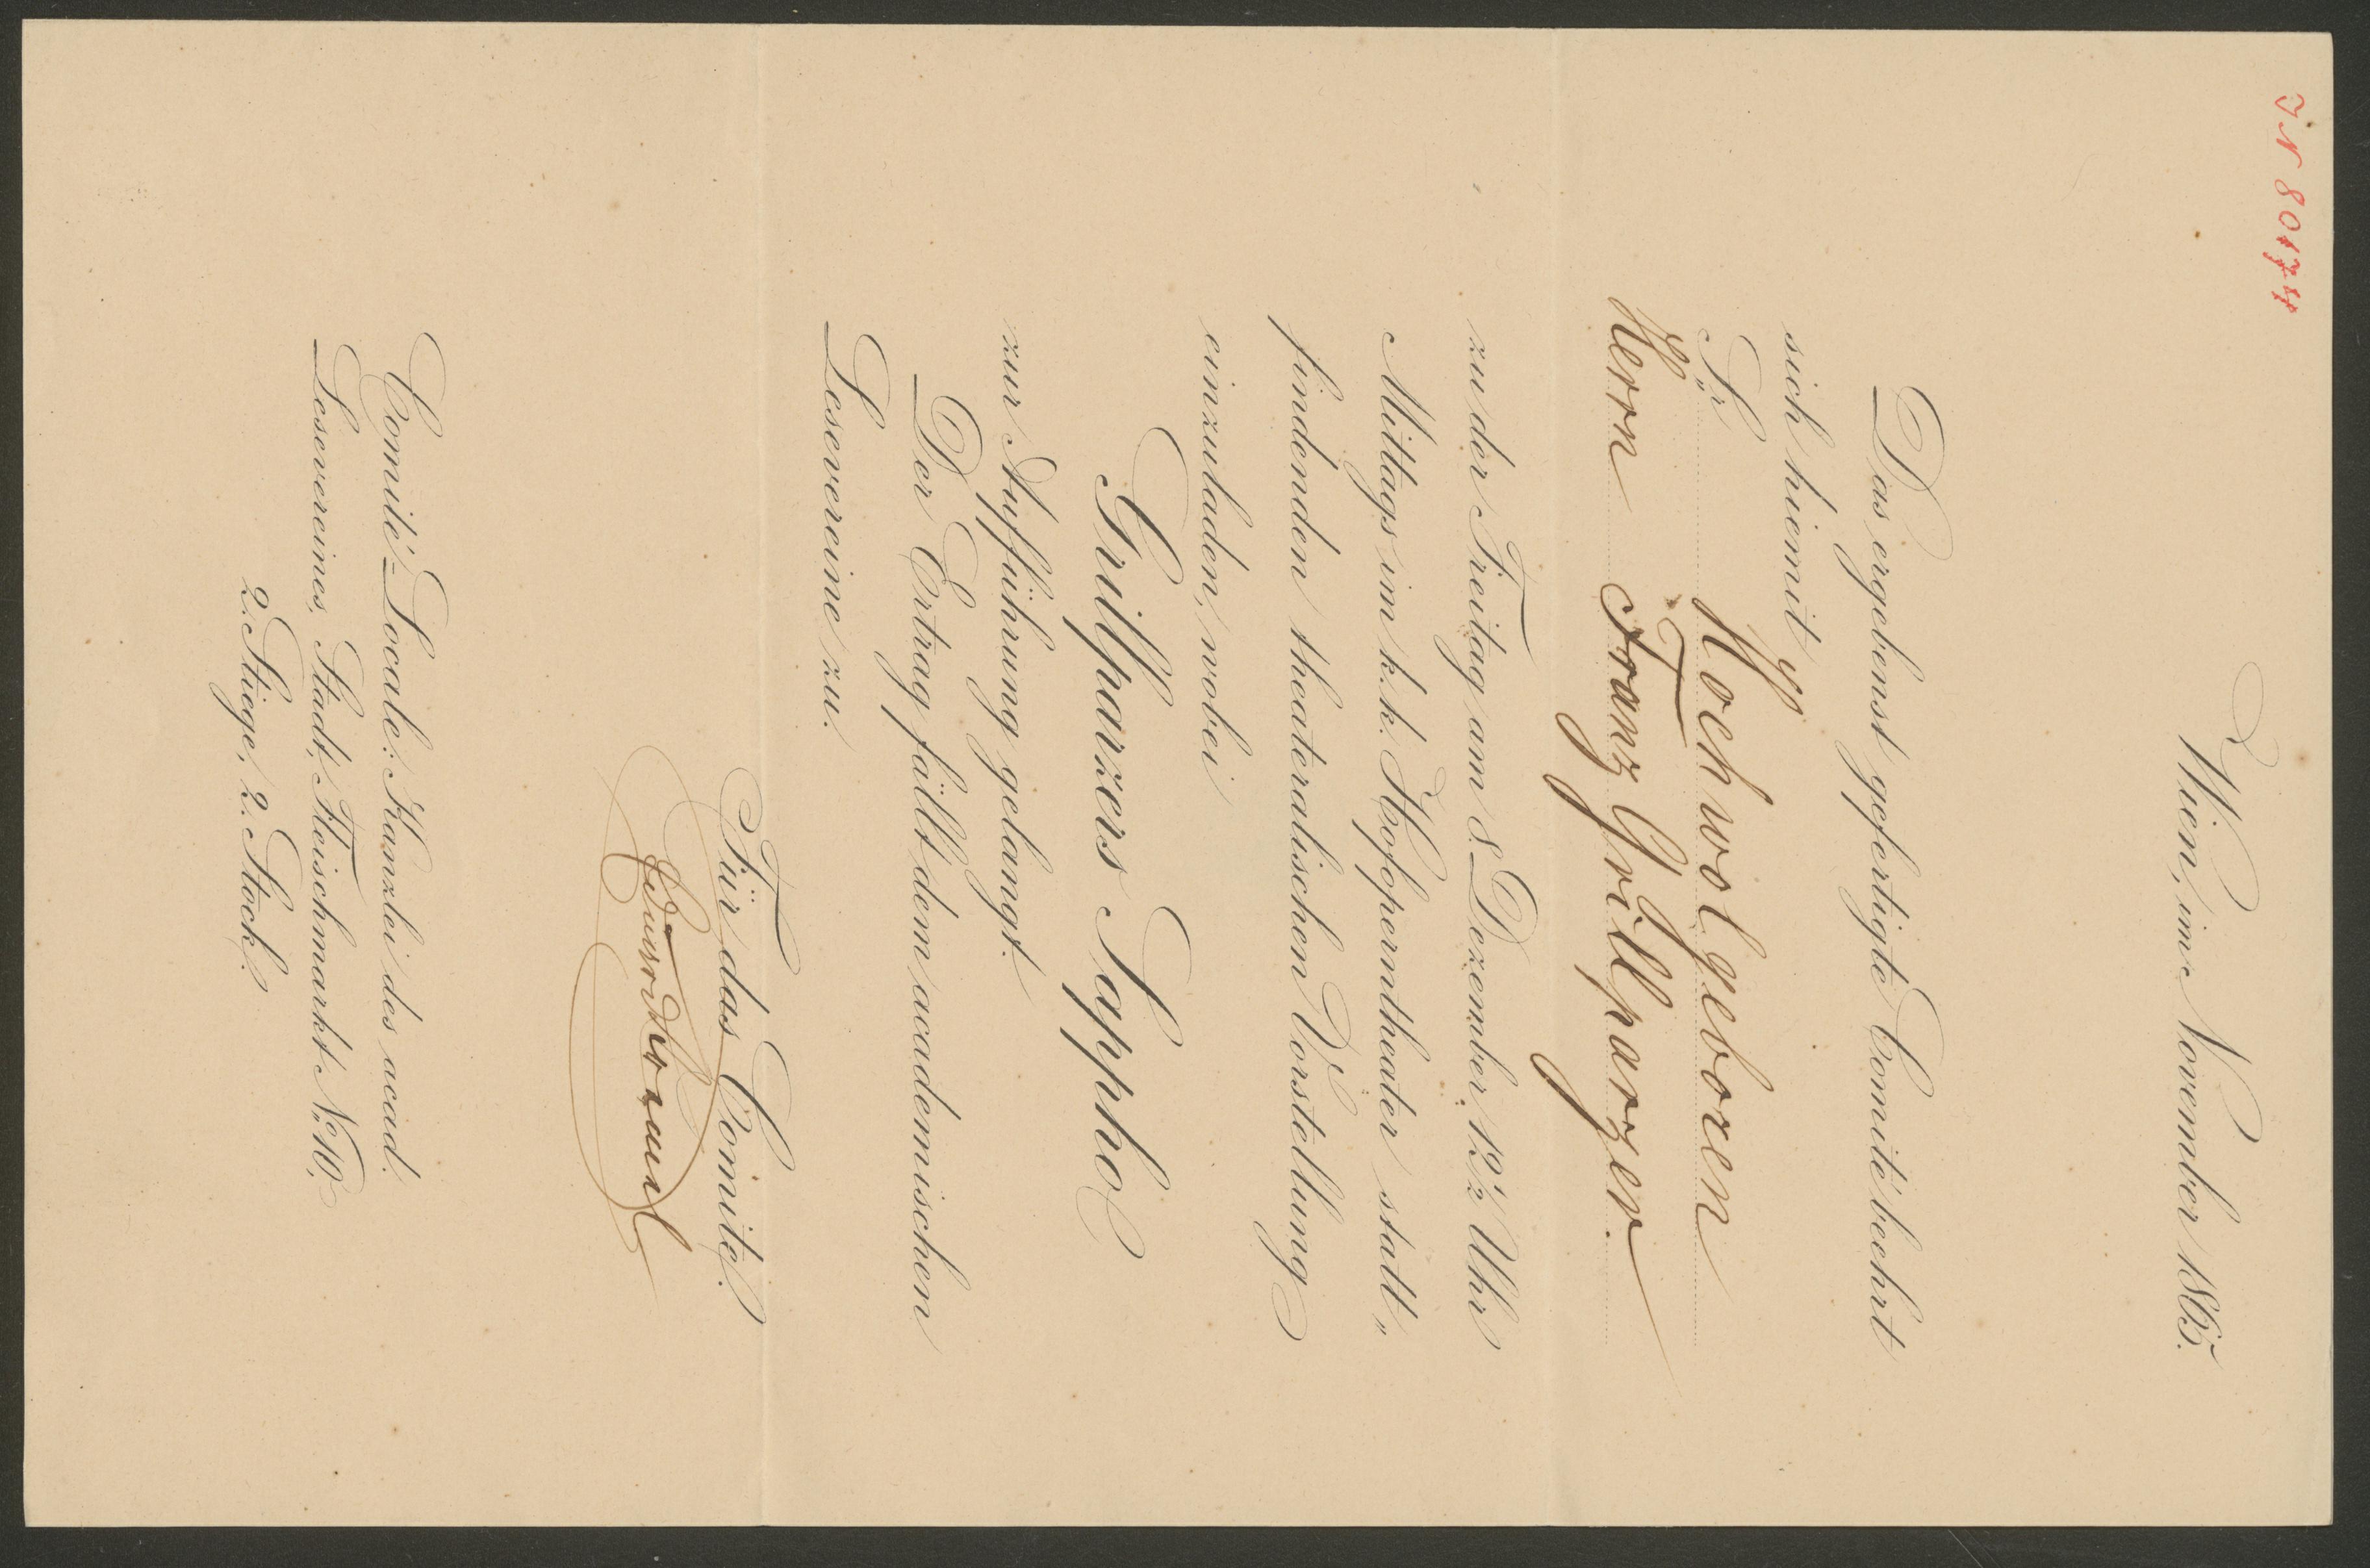 IN 80174
Wien, im November 1865.
Das ergebenst gefertigte Comité beehrt
sich hiemit
Sr. Hochwolgeboren
Herrn Franz Grillparzer
zu der Freitag am 8. Dezember, 12½ Uhr
Mittags im k. k. Hofoperntheater statt„
findenden theateralischen Vorstellung
einzuladen, wobei
Grillparzers Sappho
zur Aufführung gelangt.
Der Ertrag fällt dem academischen
Lesevereine zu.
Für das Comité.
Comité-Locale: Kanzlei des acad.
Lesevereines, Stadt, Fleischmarkt No. 10,
2. Stiege, 2. Stock.